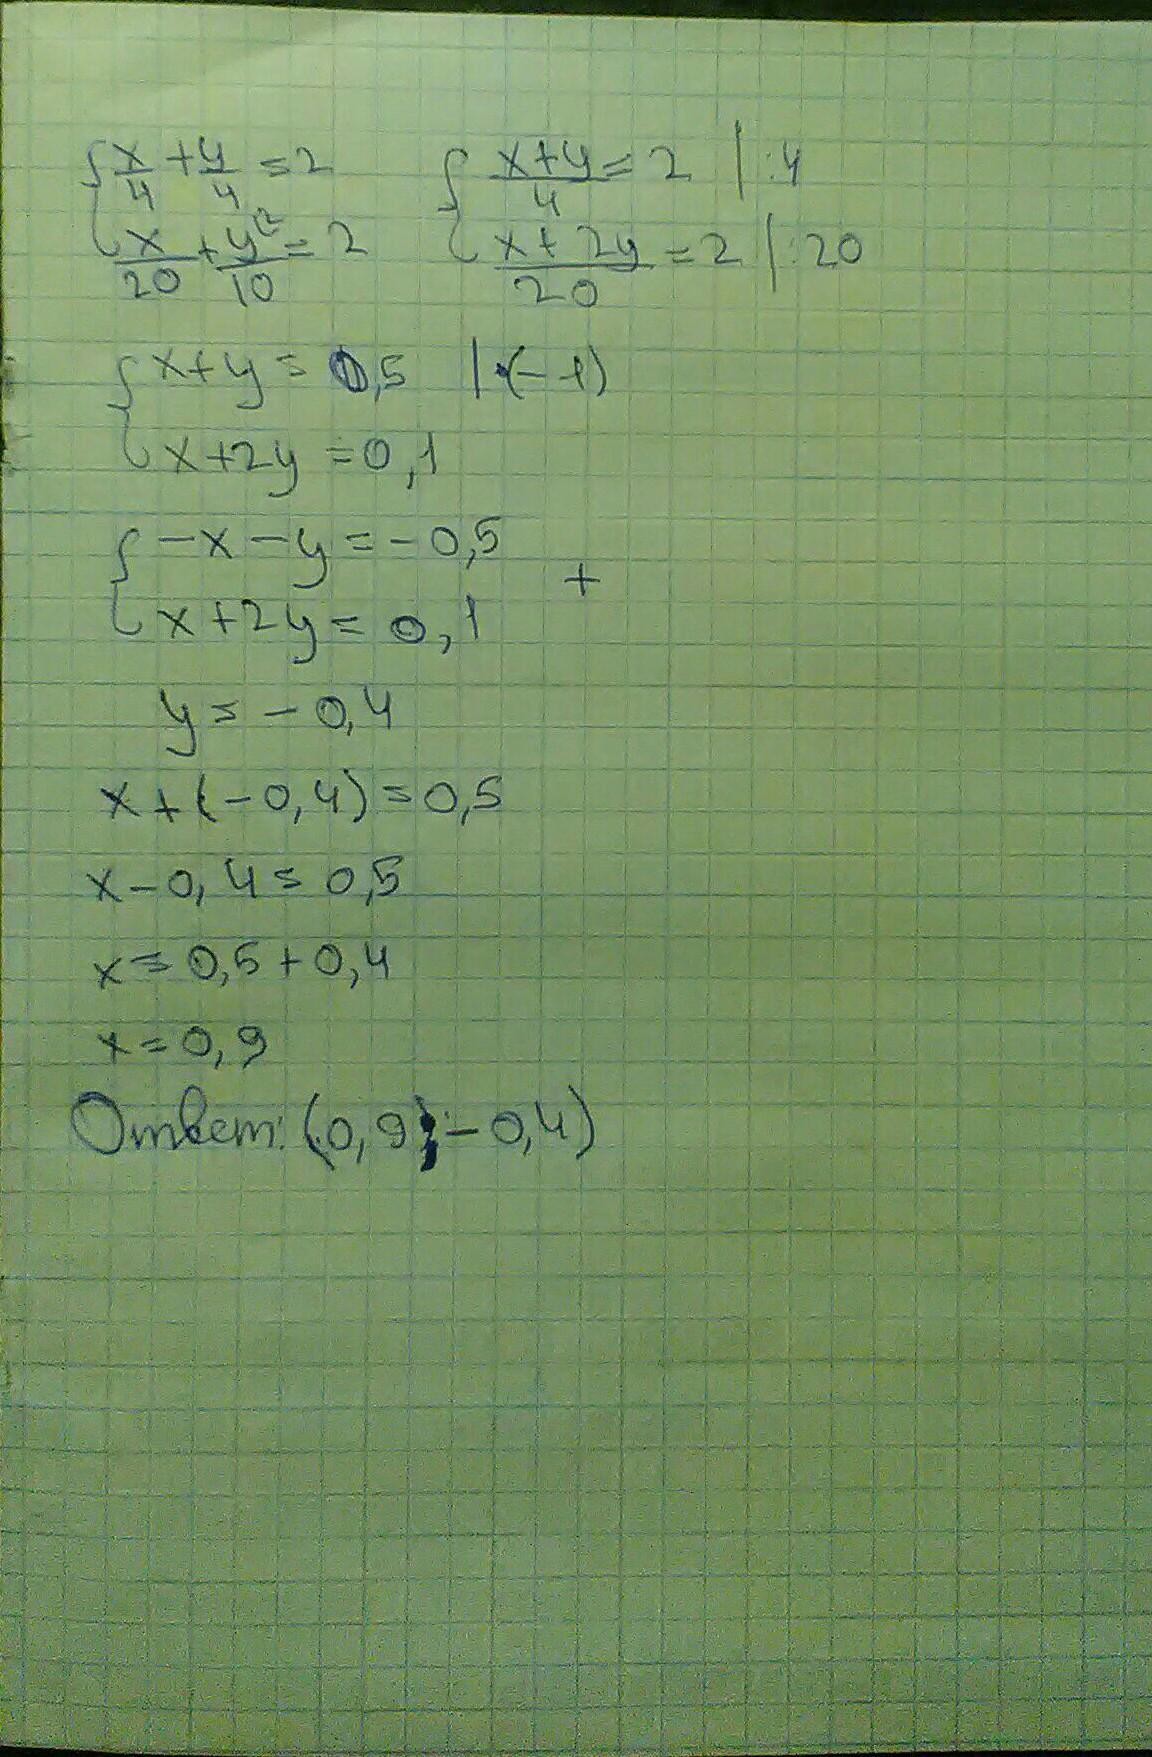 {x/4 + y/4 = 2   {(x+y)/4 = 2 | :4
{x/20 + y⁽²/10 = 2   {(x+2y)/20 = 2 | :20
{x+y = 0,5 | ·(-1)
{x+2y = 0,1
{-x-y = -0,5
+
{x+2y = 0,1
y = -0,4
x+(-0,4) = 0,5
x-0,4 = 0,5
x = 0,5+0,4
x = 0,9
Ответ: (0,9; -0,4)